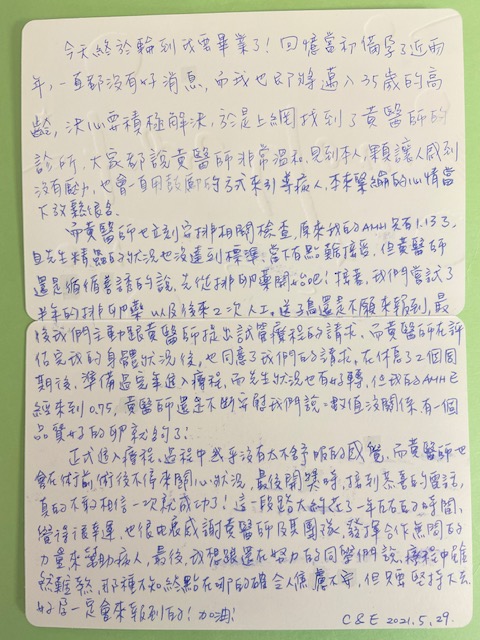 今天終於輪到我要畢業了！回憶當初備孕了近兩
年，一直都沒有好消息，而我也即將邁入35歲的高
齡，決心要積極解決，於是上網找到了黃醫師的
診所，大家都說黃醫師非常溫和，見到本人，果讓人感到
沒有壓力，也會一直用鼓勵的方式來引導病人，本來緊繃的心情當
下放鬆很多。
而黃醫師也立刻安排相關檢查，原來我的AMH只有1.13了，
且先生精蟲的狀況也沒達到標準，當下有點難接受，但黃醫師
還是循循善誘的說，先從排卵藥開始吧！接著，我們嘗試了
半年的排卵藥以及後來2次人工，送子鳥還是不願來報到，最
後我們主動跟黃醫師提出試管療程的請求，而黃醫師在評
估完我的身體狀況後，也同意了我們的請求。在休息2個周
期後，準備過完年進入療程，而先生狀況也有好轉，但我的AMH已
經來到0.75，黃醫師還是不斷安慰我們說：數值沒關係，有一個
品質好的卵就夠了！
正式進入療程，過程中幾乎沒有太不舒服的感覺，而黃醫師也
會在術前、術後不停來關心狀況，最後開獎時，接到恭喜的電話，
真的不敢相信一次就成功了！這一段路大約花了一年左右的時間，
覺得很幸運，也很由衷感謝黃醫師及其團隊，發揮合作無間的
力量來幫助病人，最後，我想跟還在努力的同學們說，療程中雖
然難熬，那種不知終點在哪的確令人焦慮不安，但只要堅持下去，
好孕一定會來報到的！加油！
C & E 2021.5.29.